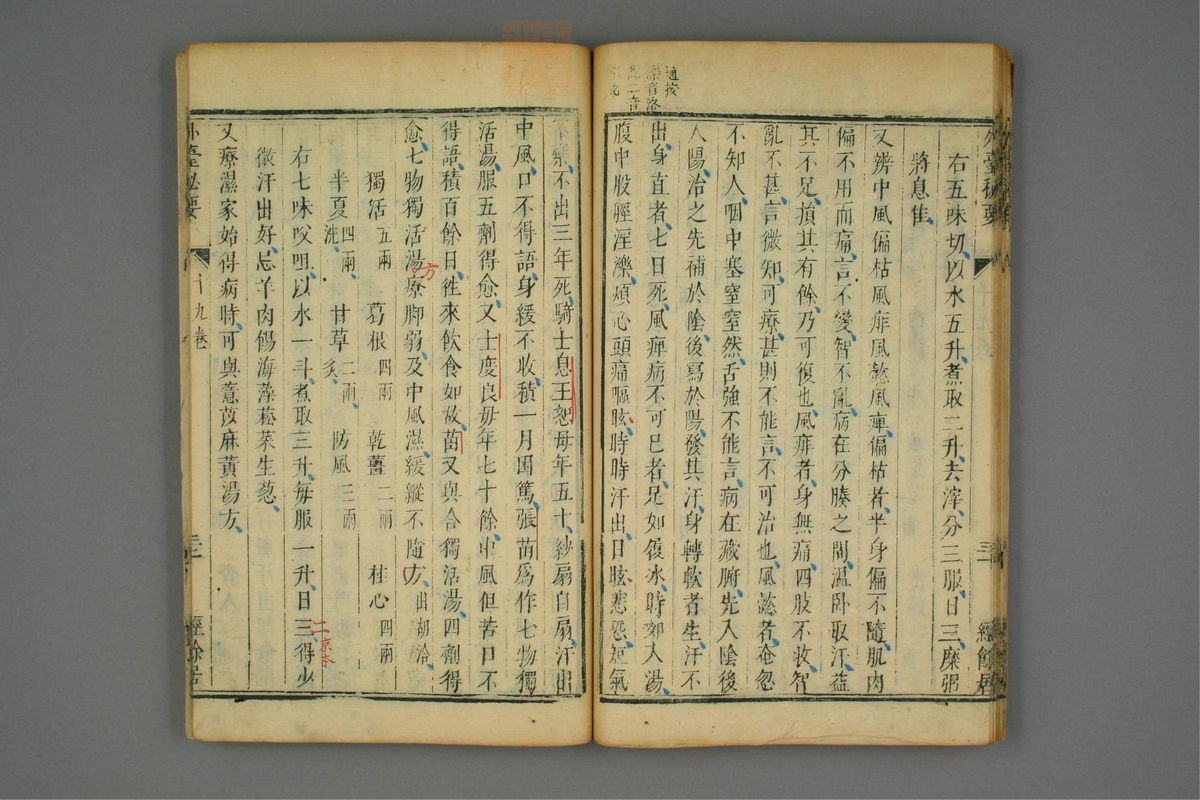 外臺秘要
三
經餘居
右五味切以水五升煮取二升去滓分三服日三糜粥
將息佳
又辨中風偏枯風痱風懿風痺偏枯者半身偏不隨肌肉
偏不用而痛言不變智不亂病在分腠之間溫臥取汗益
其不足損其有餘乃可復也風痱者身無痛四肢不收智
亂不甚言微知可療甚則不能言不可治也風懿者奄忽
不知人咽中塞窒窒然舌強不能言病在藏腑先入陰後
入陽治之先補於陰後寫於陽發其汗身轉軟者生汗不
出身直者七日死風痺病不可已者足如履冰時如入湯
腹中股脛淫濼煩心頭痛嘔眩時時汗出目眩悲恐短氣
通按
濼音洛
二音
不樂不出三年死騎士息王恕母年五十紗扇自扇汗出
中風口不得語身緩不收積一月困篤張苗為作七物獨
活湯服五劑得愈又士度良母年七十餘中風但苦口不
得語積百餘日往來飲食如故苗又與合獨活湯四劑得
愈七物獨活湯療脚弱及中風濕緩縱不隨方出胡洽
方
獨活五兩 葛根四兩 乾薑二兩 桂心四兩
半夏四兩洗 甘草二兩炙 防風三兩
右七味㕮咀以水一斗煮取三升每服一升日三得少
二京本
微汗出好忌羊肉餳海藻菘菜生葱
又療濕家始得病時可與薏苡麻黃湯方
外臺秘要
十九卷
三
經餘居